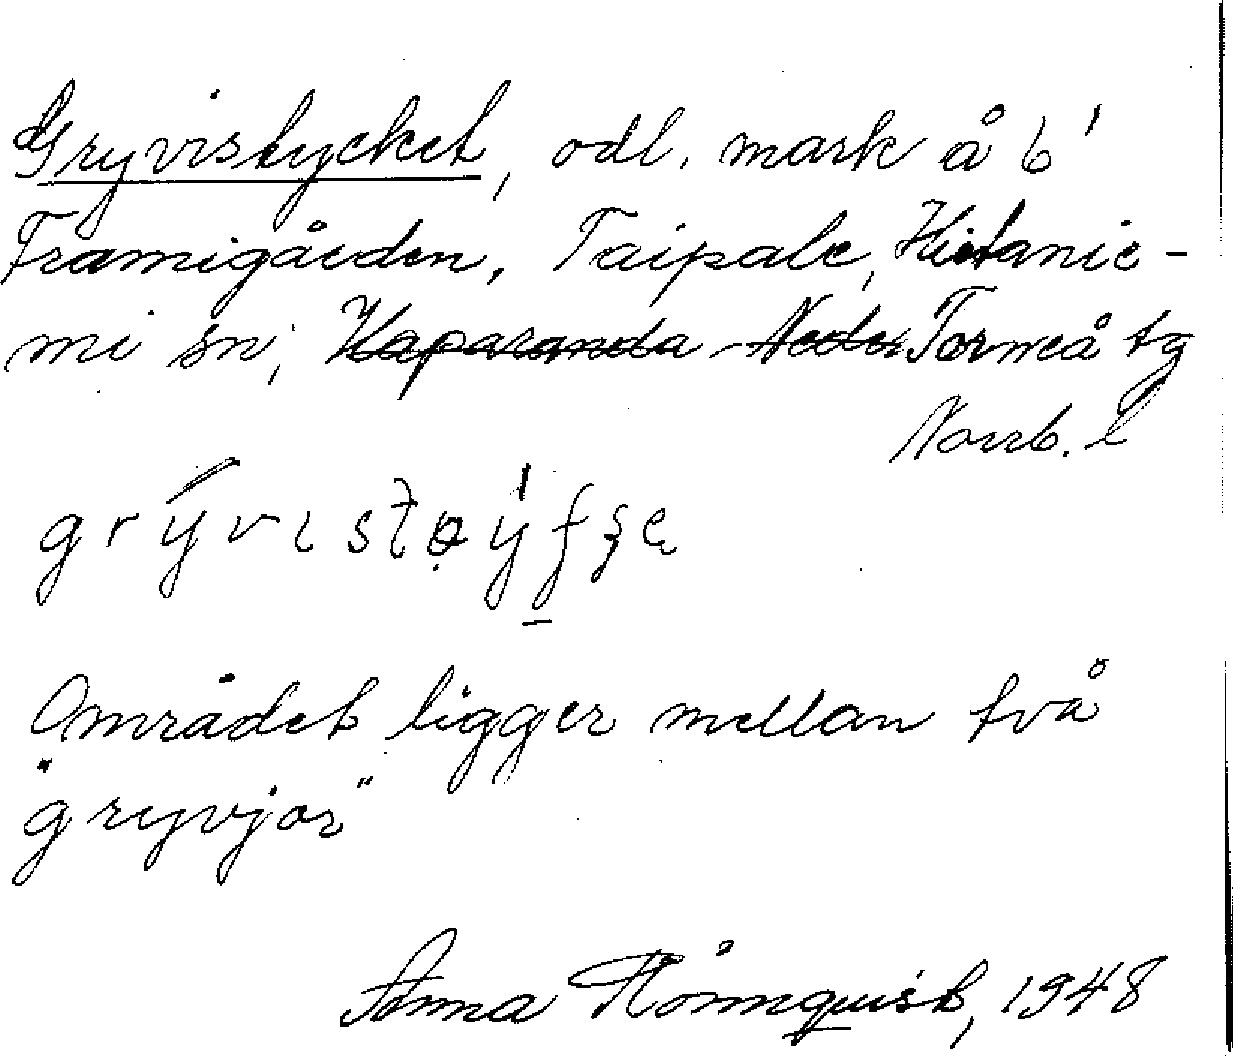 Gryvistycket, odl. mark å 6¹
Framigården, Taipale, Hietanie-
mi sn, Haparanda Neder Torneå tg
Norrb. l
Området ligger mellan två
"gryvjor"
Anna 1948